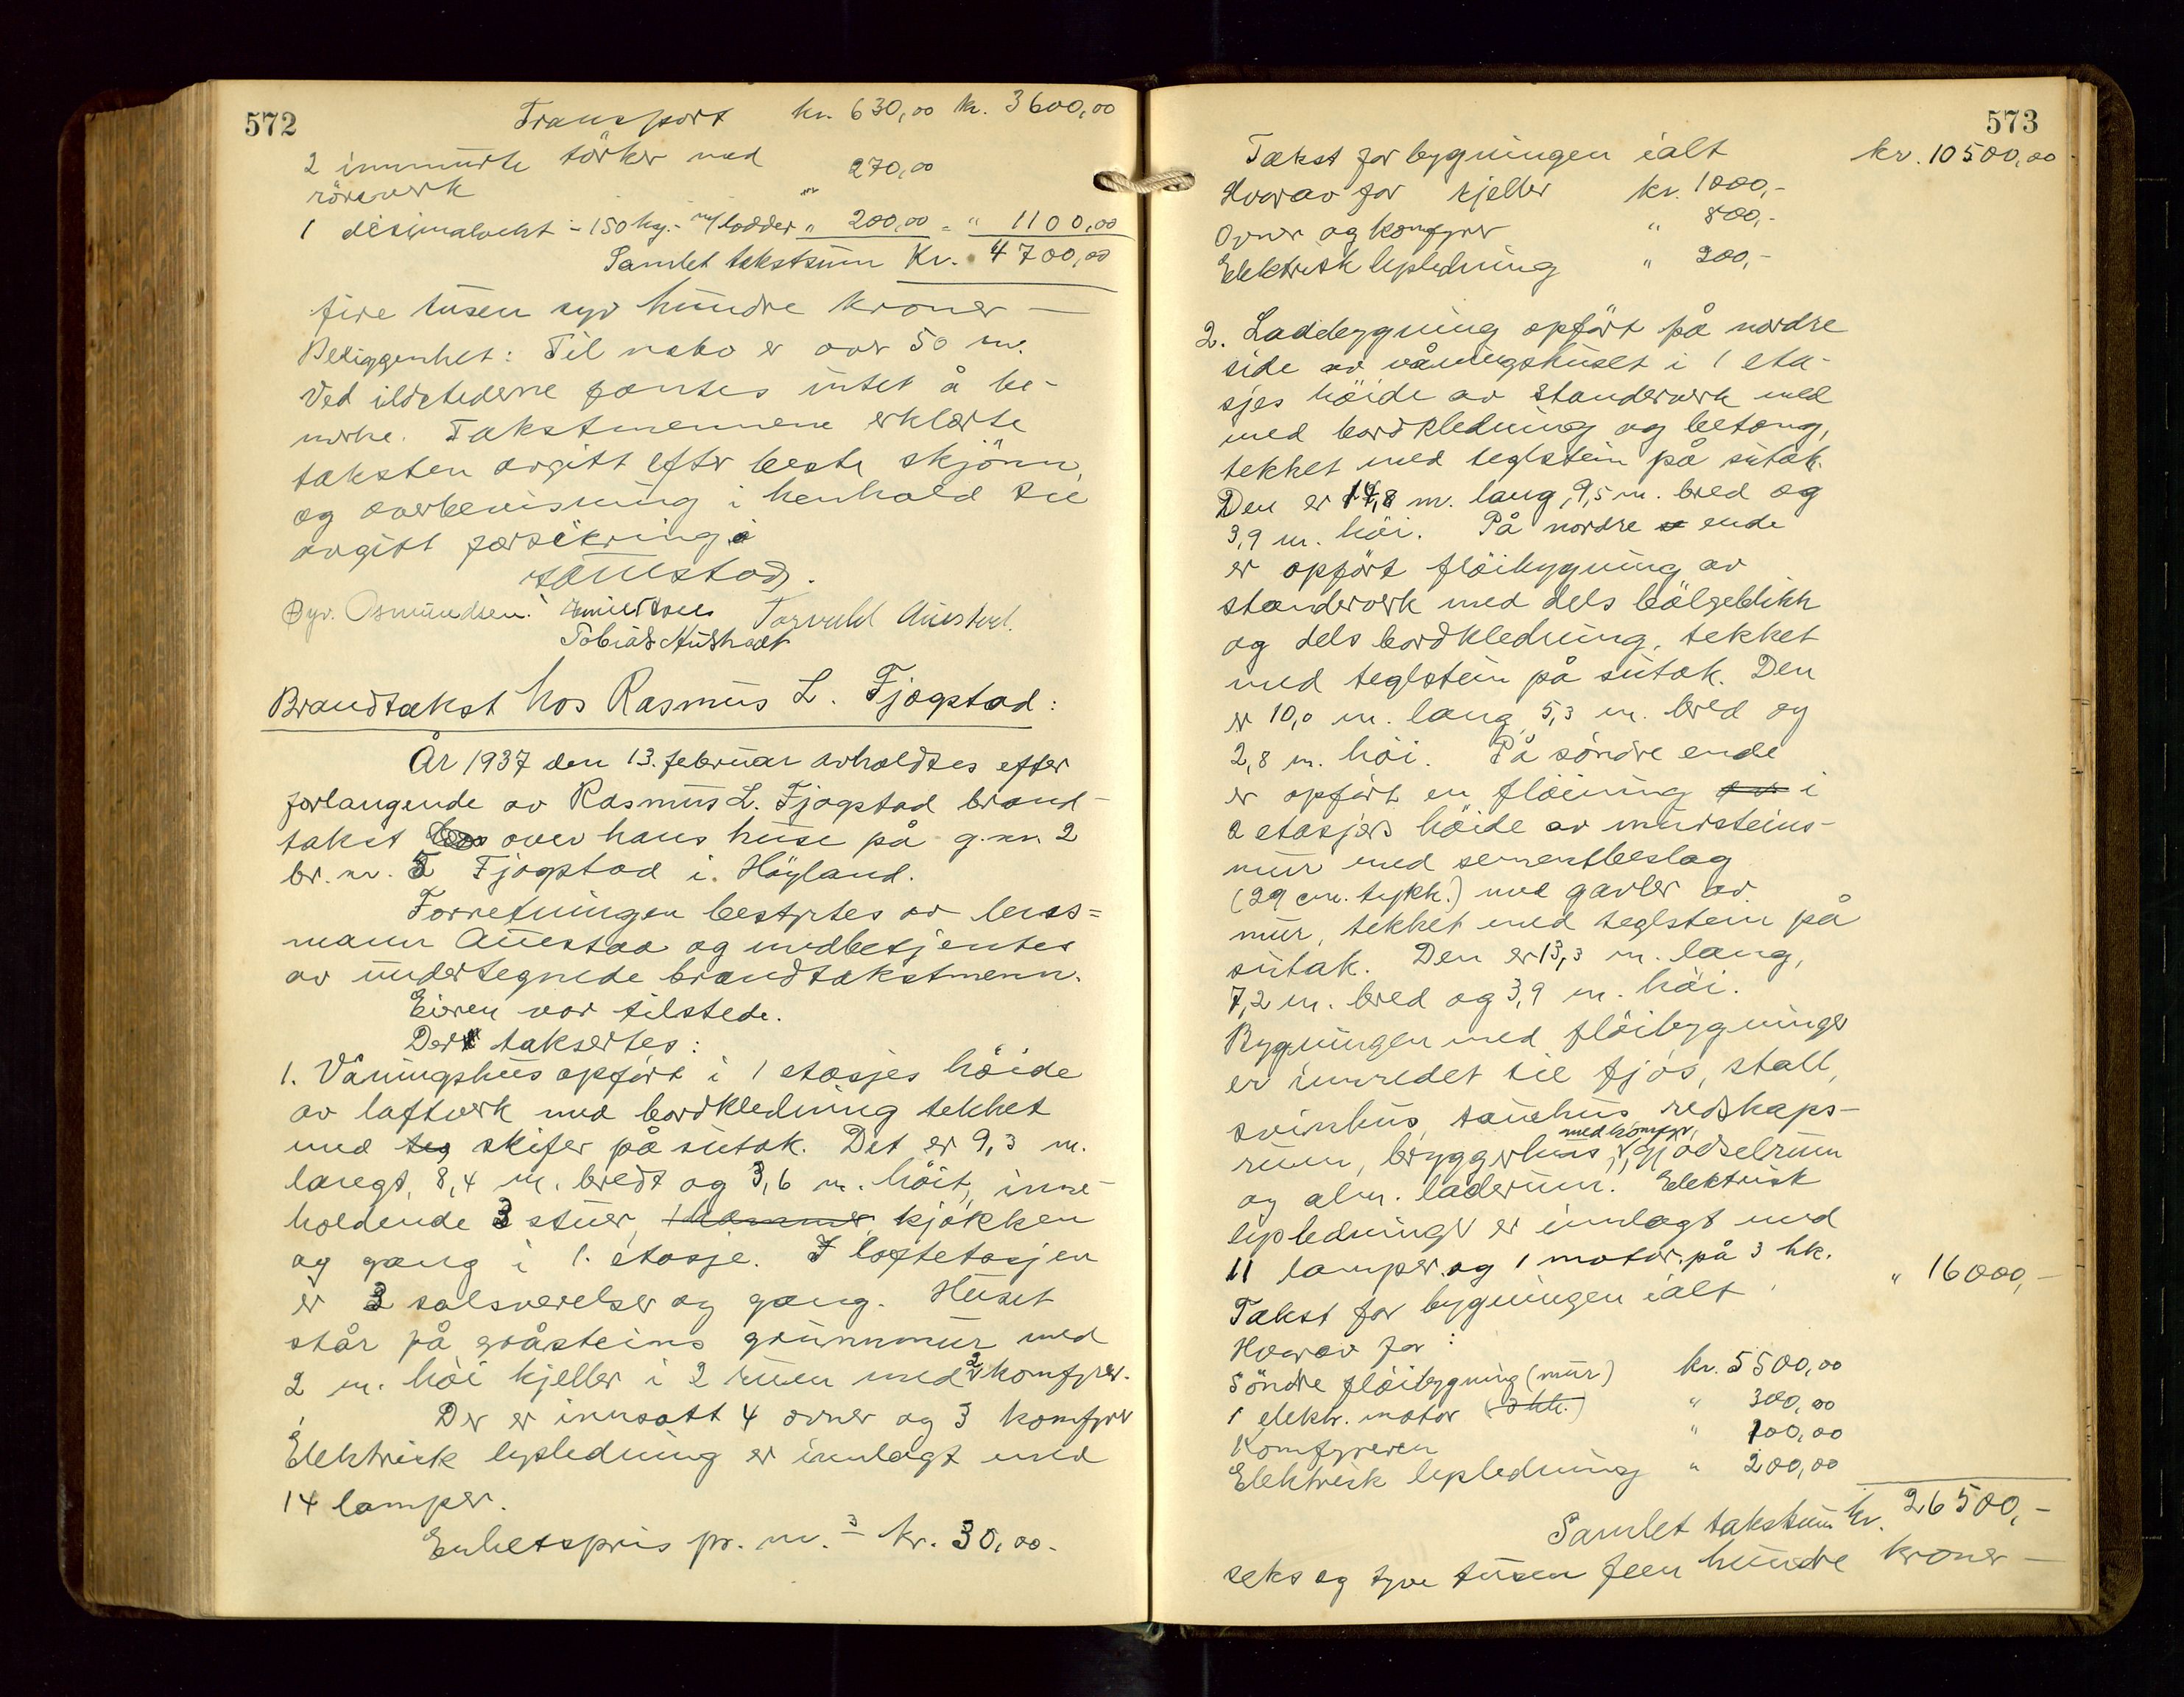 572
Transport kr. 630,00 kr. 3600,00
2 innmurte törker med
röreverk " 270,00
1 desimalvekt - 150 kg. - m/lodder " 200,00 = " 1100,00
Samlet takstsum Kr. 4700,00
fire tusen syv hundre kroner —
Beliggenhet: Til nabo er over 50 m.
Ved ildstederne fantes intet å be-
merke. Takstmennene erklærte
taksten avgitt efter beste skjönn,
og overbevisning i henhold til
avgitt forsikring.
Auestad.
Byv. Osmundsen. Torvald Auestad.
Tobias Austvoll
Brandtakst hos Rasmus L. Fjogstad:
År 1937 den 13. februar avholdtes efter
forlangende av Rasmus L. Fjogstad brand-
takst hos over hans huse på g.nr. 2
br. nr. 5 Fjogstad i. Höyland.
Forretningen bestyrtes av lens=
mann Auestad og medbetjentes
av undertegnede brandtakstmenn.
Eieren var tilstede.
Der taksertes:
1. Våningshus opfört i 1 etasjes höide
av laftverk med bordkledning tekket
med teg skifer på sutak. Det er 9,3 m.
langt, 8,4 m. bredt og 3,6 m. höit, inne-
holdende 3 stuer, 1 kammer, kjökken
og gang i 1. etasje. I loftetasjen
er 3 salsverelser og gang. Huset
står på gråsteins grunnmur med
2 m. höi kjeller i 2 rum med 2 komfyrer.
Der er innsatt 4 ovner og 3 komfyrer
Elektrisk lysledning er innlagt med
14 lamper.
Enhetspris pr. m.3 kr. 30,00.
573
Takst for bygningen ialt kr. 10500,00
Hvorav for kjeller kr. 1000,-
Ovner og komfyrer " 800,-
Elektrisk lysledning " 200,-
2. Ladebygning opfört på nordre
side av våningshuset i 1 eta-
sjes höide av standerverk med
med bordkledning og betong,
tekket med teglstein på sutak.
Den er 14,8 m. lang, 9,5 m. bred og
3,9 m. höi. På nordre s ende
er opfört flöibygning av
standerverk med dels bölgeblikk
og dels bordkledning, tekket
med teglstein på sutak. Den
er 10,0 m. lang, 5,3 m. bred og
2,8 m. höi. På söndre ende
er opfört en flöining av i
2 etasjers höide av mursteins-
mur med sementbeslag
(29 cm. tykk.) med gavler av
mur, tekket med teglstein på
sutak. Den er 13,3 m. lang,
7,2 m. bred og 3,9 m. höi.
Bygningen med flöibygninger
er innredet til fjös, stall,
svinhus, sauehus, redskaps-
rum, bryggerhus, med komfyr, gjödselrum
og alm. laderum. Elektrisk
lysledning er innlagt med
11 lamper og 1 motor på 3 hk.
Takst for bygningen ialt " 16000,-
Hvorav for:
Söndre flöibygning (mur) kr. 5500,00
1 elektr. motor (3 hk.) " 300,00
Komfyreren " 100,00
Elektrisk lysledning " 200,00
Samlet takstsum kr. 26500,-
seks og tyve tusen fem hundre kroner —